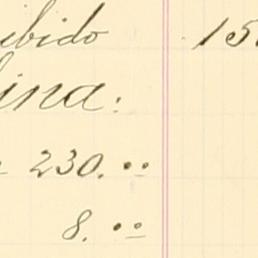 ibido 15
ina:
230. ••
8. ••